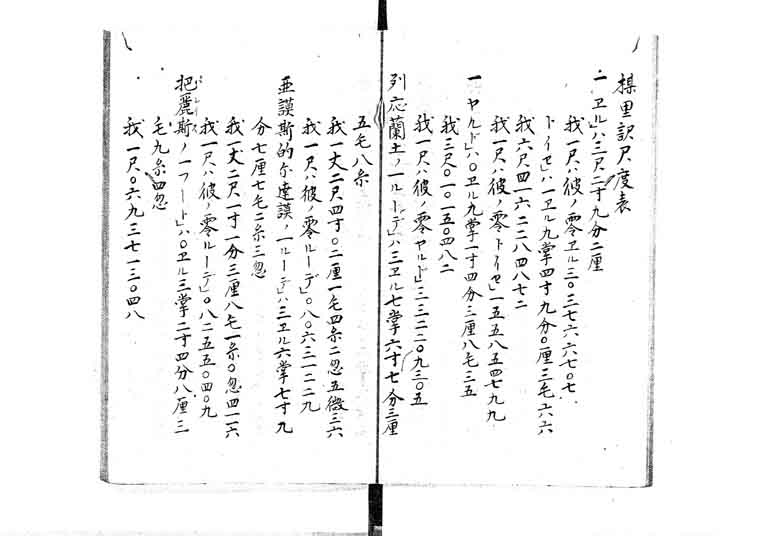 楳里訳尺度表
一 ヱル」ハ三尺二寸九分二厘
我一尺ハ彼ノ零ヱル三〇三七六六七〇七
トイセ」ハ一ヱル九掌四寸九分〇厘三毛六六
我六尺四一六二二八四八七二
我一尺ハ彼ノ零トイセ」一五五八五四七九九
一 ヤルド」ハ〇ヱル九掌一寸四分三厘八毛三五
我三尺〇一〇一五〇四八二
我一尺ハ彼ノ零ヤルド」三三二二〇九三〇五
列応蘭土ノ一ルーデ」ハ三ヱル七掌六寸七分三厘
五毛八糸
我一丈二尺四寸〇三厘一毛四糸二忽五微三六
我一尺ハ彼ノ零ルーデ」〇八〇六三一二二九
亜謨斯的尓達謨ノ一ルーデ」ハ三ヱル六掌七寸九
分七厘七毛二糸三忽
我一丈二尺一寸一分三厘八毛一糸〇忽四一六
我一尺ハ彼ノ零ルーデ」〇八二五五〇四〇九
把麗斯ノ一フート」ハ〇ヱル三掌二寸四分八厘三
毛九糸四忽
我一尺〇六九三七一三〇四八